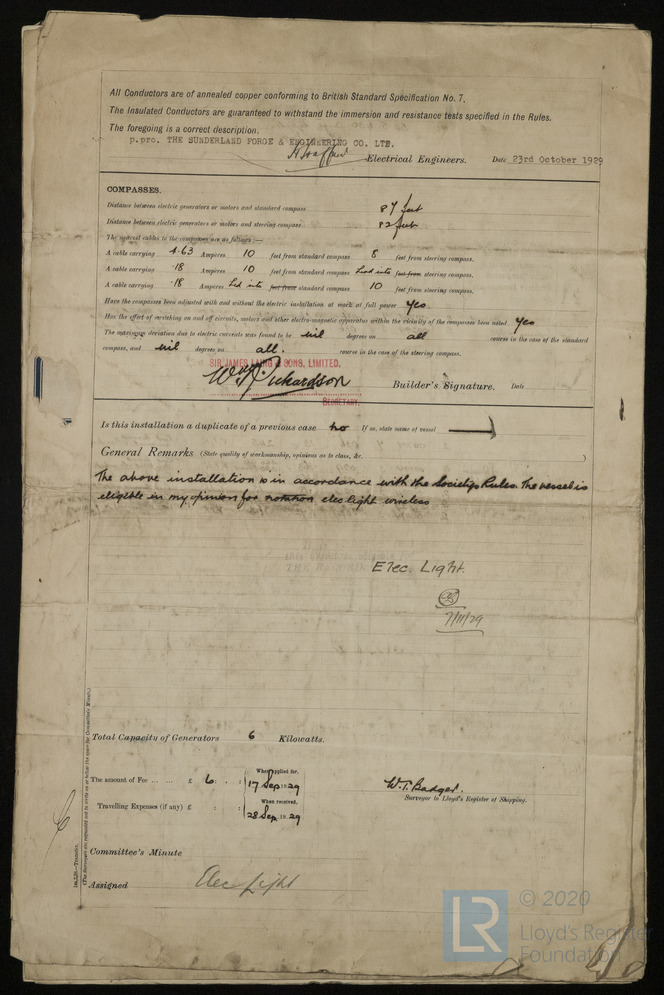 All Conductors are of annealed copper conforming to British Standard Specification No. 7.
The Insulated Conductors are guaranteed to withstand the immersion and resistance tests specified in the Rules.
The foregoing is a correct description.
p.pro. THE SUNDERLAND FORGE & ENGINEERING CO. LTD.
Electrical Engineers. Date 23rd October 1929
COMPASSES.
Distance between electric generators or motors and standard compass 87 feet
Distance between electric generators or motors and steering compass 82 feet
The nearest cables to the compasses are as follows:—
A cable carrying 4.63 Ampères 10 feet from standard compass 8 feet from steering compass.
A cable carrying .18 Ampères 10 feet from standard compass Lead into feet from steering compass.
A cable carrying .18 Ampères Led into feet from standard compass 10 feet from steering compass.
Have the compasses been adjusted with and without the electric installation at work at full power yes
Has the effect of switching on and off circuits, motors and other electro-magnetic apparatus within the vicinity of the compasses been noted yes
The maximum deviation due to electric currents was found to be nil degrees on all course in the case of the standard
compass, and nil degrees on all. course in the case of the steering compass.
SIR JAMES LAING & SONS, LIMITED.
Wm Richardson Builder's Signature. Date
SECRETARY.
Is this installation a duplicate of a previous case no If so, state name of vessel
General Remarks (State quality of workmanship, opinions as to class, &c. )
The above installation is in accordance with the Societys Rules. The vessel is
eligible in my opinion for notation elec light wireless
Elec. Light.
7/11/29
Total Capacity of Generators 6 Kilowatts.
The amount of Fee ... ... £ 6 : : When applied for, 17 Sep. 19 29
W.T. Badger.
Surveyor to Lloyd's Register of Shipping.
Travelling Expenses (if any) £ : : When received, 28 Sep. 19 29
Committee's Minute
Assigned Elec Light
© 2020
LR
Lloyd's Register
Foundation